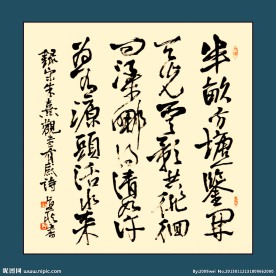 半畝方塘一鑒開
天光雲影共徘徊
问渠哪得清如许
為有源頭活水来
錄宋朱熹觀書有感詩
昵图网 www.nipic.com
By:2009wei No:20130112131809062000